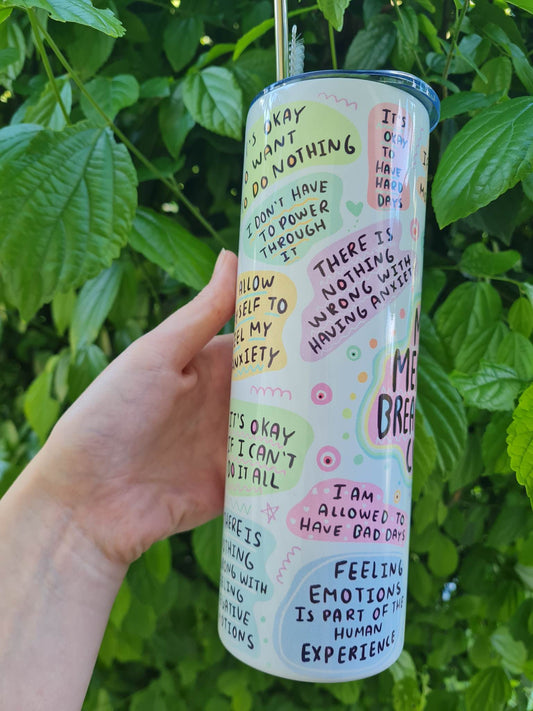 IT'S OKAY
TO WANT
TO DO NOTHING
IT'S
OKAY
TO
HAVE
HARD
DAYS
I DON'T HAVE
TO POWER
THROUGH
IT
THERE IS
NOTHING
WRONG WITH
HAVING ANXIETY
ALLOW
MYSELF TO
FEEL MY
ANXIETY
IT'S OKAY
IF I CAN'T
DO IT ALL
I AM
ALLOWED TO
HAVE BAD DAYS
THERE IS
NOTHING
WRONG WITH
NEGATIVE
EMOTIONS
FEELING
EMOTIONS
IS PART OF THE
HUMAN
EXPERIENCE